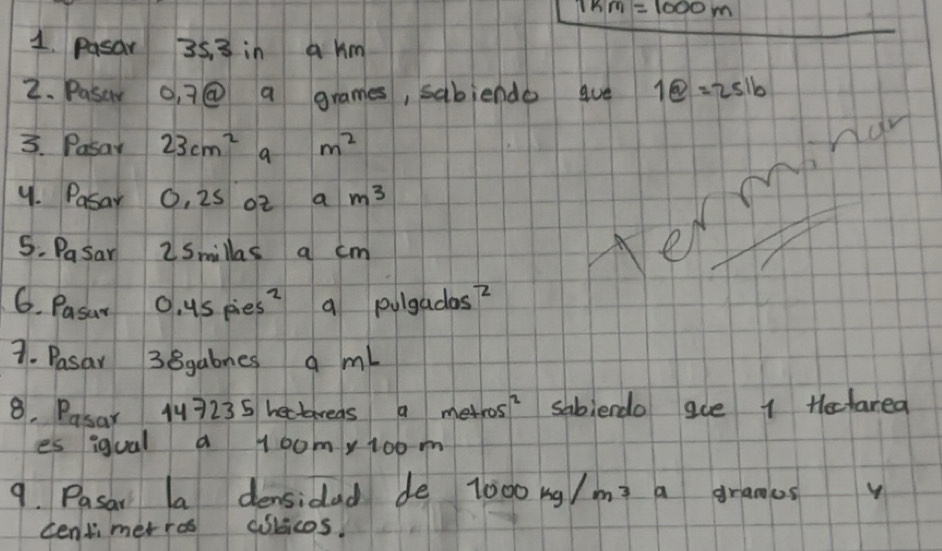 1Km = 1000m
1. Pasar 35,3 in a km
2. Pasar 0,7@ a grames, sabiendo que 1@ = 25lb
3. Pasar 23cm² a m²
4. Pasar 0,25 oz a m³
5. Pasar 25millas a cm
6. Pasar 0,45 pies² a pulgadas²
Terminar
7. Pasar 38galones a mL
8. Pasar 147235 hectareas a metros² sabiendo que 1 Hectarea
es igual a 100m y 100m
9. Pasar la densidad de 1000 kg/m³ a gramos y
centimetros cúbicos.